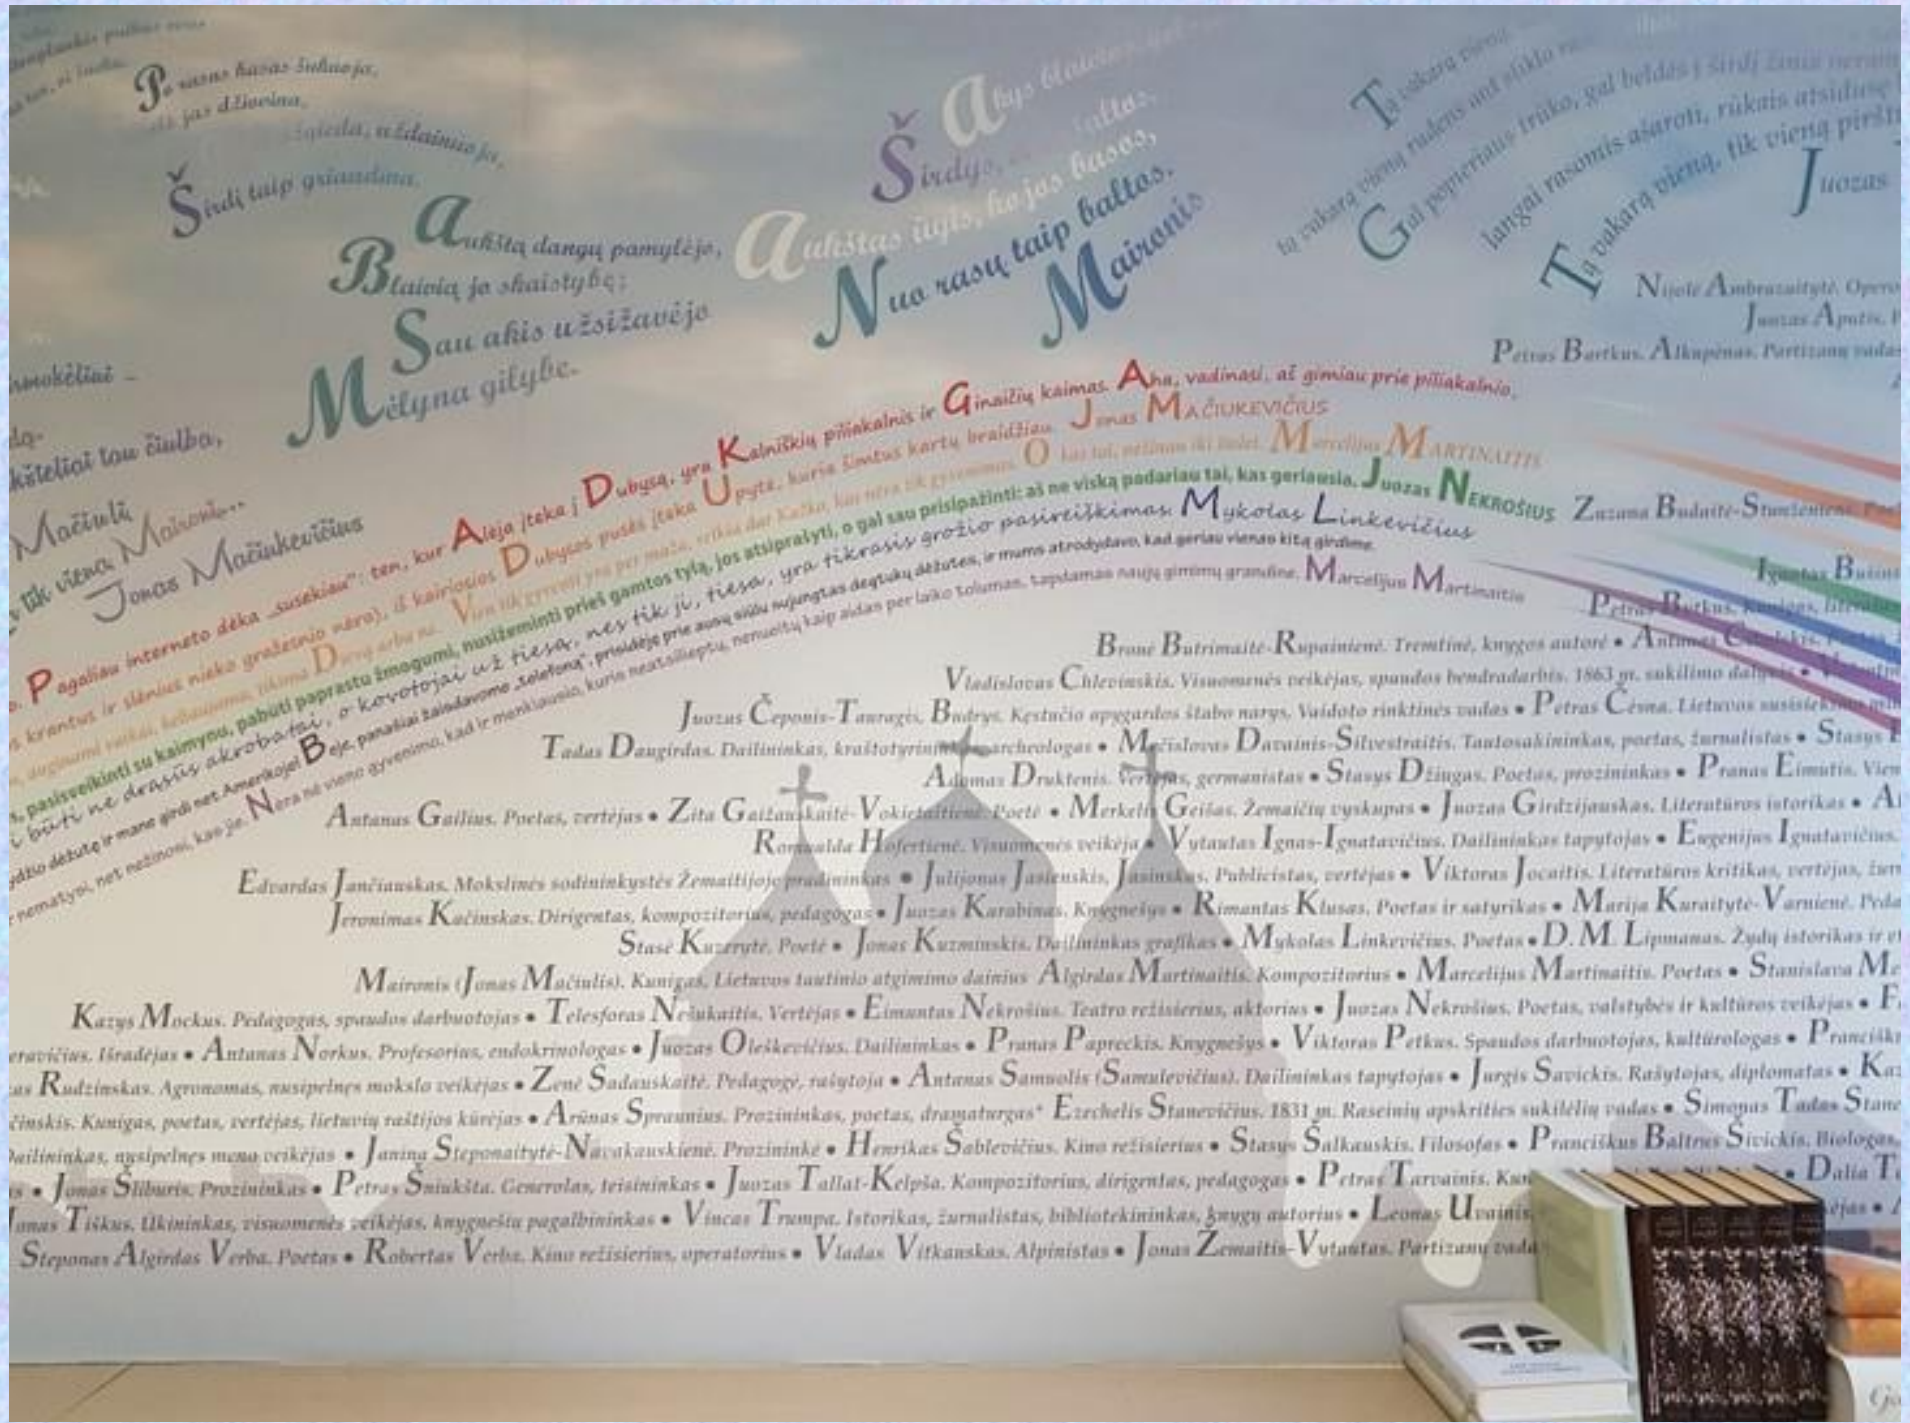 Po rasas basas šukuoja,
jas džiovina,
uždainuoja,
Širdį taip griaudina.
Aukštą dangų pamylėjo,
Blaivią jo skaistybę;
Sau akis užsižavėjo
Mėlyna gilybe.
Akys
Širdys, baltos,
Aukštas ūgis, kojos basos,
Nuo rasų taip baltos.
Maironis
Tą vakarą vieną
tą vakarą vieną rudens ant stiklo
Gal popieriaus trūko, gal beldės į širdį žinia
langai rasomis ašaroti, rūkais atsidusę
Tą vakarą vieną, tik vieną
Juozas
čiulba,
Mačiulį
tik viena Maironi...
Jonas Mačiukevičius
Pagaliau interneto dėka „susekiau“: ten, kur Alėja įteka į Dubysą, yra Kalniškių piliakalnis ir Ginaičių kaimas. Aha, vadinasi, aš gimiau prie piliakalnio,
krantus ir slėnius nieko gražesnio nėra), iš kairiosios Dubysos pusės įteka Upytė, kuria šimtus kartų braidžiau. Jonas MAČIUKEVIČIUS
Vien tik gyventi yra per maža, reikia dar Kažko, kas nėra tik gyvenimas. O kas tai, nežinau iki šiolei. Marcelijus MARTINAITIS
pasisveikinti su kaimynu, pabūti paprastu žmogumi, nusižeminti prieš gamtos tylą, jos atsiprašyti, o gal sau prisipažinti: aš ne viską padariau tai, kas geriausia. Juozas NEKROŠIUS
būti ne drąsūs akrobatai, o kovotojai už tiesą, nes tik ji, tiesa, yra tikrasis grožio pasireiškimas. Mykolas Linkevičius
dėžutę ir mane girdi net Amerikoje! Beje, panašiai žaisdavome „telefoną“, prisidėję prie ausų siūlu sujungtas degtukų dėžutes, ir mums atrodydavo, kad geriau vienas kitą girdime.
nematysi, net nežinosi, kas jie. Nėra nė vieno gyvenimo, kad ir menkiausio, kuris neatsilieptų, nenueitų kaip aidas per laiko tolumas, tapdamas naujų gimimų grandine. Marcelijus Martinaitis
Nijolė Ambrazaitytė. Operos
Juozas Aputis.
Petras Bartkus. Alkupėnas. Partizanų vadas
Zuzana Budaitė-
Ignotas
Petras Butkus. Kunigas,
Bronė Butrimaitė-Rupainienė. Tremtinė, knygos autorė • Antanas
Vladislovas Chlevinskis. Visuomenės veikėjas, spaudos bendradarbis. 1863 m. sukilimo dalyvis •
Juozas Čeponis-Tauragis, Budrys. Kęstučio apygardos štabo narys, Vaidoto rinktinės vadas • Petras Čėsna. Lietuvos
Tadas Daugirdas. Dailininkas, kraštotyrininkas, archeologas • Mečislovas Davainis-Silvestraitis. Tautosakininkas, poetas, žurnalistas • Stasys
Adomas Druktenis. Vertėjas, germanistas • Stasys Džiugas. Poetas, prozininkas • Pranas Eimutis.
Antanas Gailius. Poetas, vertėjas • Zita Gaižauskaitė-Vokietaitienė. Poetė • Merkelis Geišas. Žemaičių vyskupas • Juozas Girdzijauskas. Literatūros istorikas •
Romualda Hofertienė. Visuomenės veikėja • Vytautas Ignas-Ignatavičius. Dailininkas tapytojas • Eugenijus Ignatavičius.
Edvardas Jančiauskas. Mokslinės sodininkystės Žemaitijoje pradininkas • Julijonas Jasienskis, Jasinskas, Publicistas, vertėjas • Viktoras Jocaitis. Literatūros kritikas, vertėjas,
Jeronimas Kačinskas. Dirigentas, kompozitorius, pedagogas • Juozas Karabinas. Knygnešys • Rimantas Klusas. Poetas ir satyrikas • Marija Kuraitytė-Varnienė.
Stasė Kuzerytė. Poetė • Jonas Kuzminskis. Dailininkas grafikas • Mykolas Linkevičius. Poetas • D. M. Lipmanas. Žydų istorikas ir
Maironis (Jonas Mačiulis). Kunigas, Lietuvos tautinio atgimimo dainius Algirdas Martinaitis. Kompozitorius • Marcelijus Martinaitis. Poetas • Stanislava
Kazys Mockus. Pedagogas, spaudos darbuotojas • Telesforas Nešukaitis. Vertėjas • Eimuntas Nekrošius. Teatro režisierius, aktorius • Juozas Nekrošius. Poetas, valstybės ir kultūros veikėjas •
Išradėjas • Antanas Norkus. Profesorius, endokrinologas • Juozas Oleškevičius. Dailininkas • Pranas Papreckis. Knygnešys • Viktoras Petkus. Spaudos darbuotojas, kultūrologas •
Rudzinskas. Agronomas, nusipelnęs mokslo veikėjas • Zenė Sadauskaitė. Pedagogė, rašytoja • Antanas Samuolis (Samulevičius). Dailininkas tapytojas • Jurgis Savickis. Rašytojas, diplomatas •
Kunigas, poetas, vertėjas, lietuvių raštijos kūrėjas • Arūnas Spraunius. Prozininkas, poetas, dramaturgas* Ezechelis Stanevičius. 1831 m. Raseinių apskrities sukilėlių vadas • Simonas Tadas
nusipelnęs meno veikėjas • Janina Steponaitytė-Navakauskienė. Prozininkė • Henrikas Šablevičius. Kino režisierius • Stasys Šalkauskis. Filosofas • Pranciškus Baltrus Šivickis. Biologas,
• Jonas Šliburis. Prozininkas • Petras Šniukšta. Generolas, teisininkas • Juozas Tallat-Kelpša. Kompozitorius, dirigentas, pedagogas • Petras Tarvainis. • Dalia
Tiškus. Ūkininkas, visuomenės veikėjas, knygnešių pagalbininkas • Vincas Trumpa. Istorikas, žurnalistas, bibliotekininkas, knygų autorius • Leonas Uvainis.
Steponas Algirdas Verba. Poetas • Robertas Verba. Kino režisierius, operatorius • Vladas Vitkauskas. Alpinistas • Jonas Žemaitis-Vytautas. Partizanų